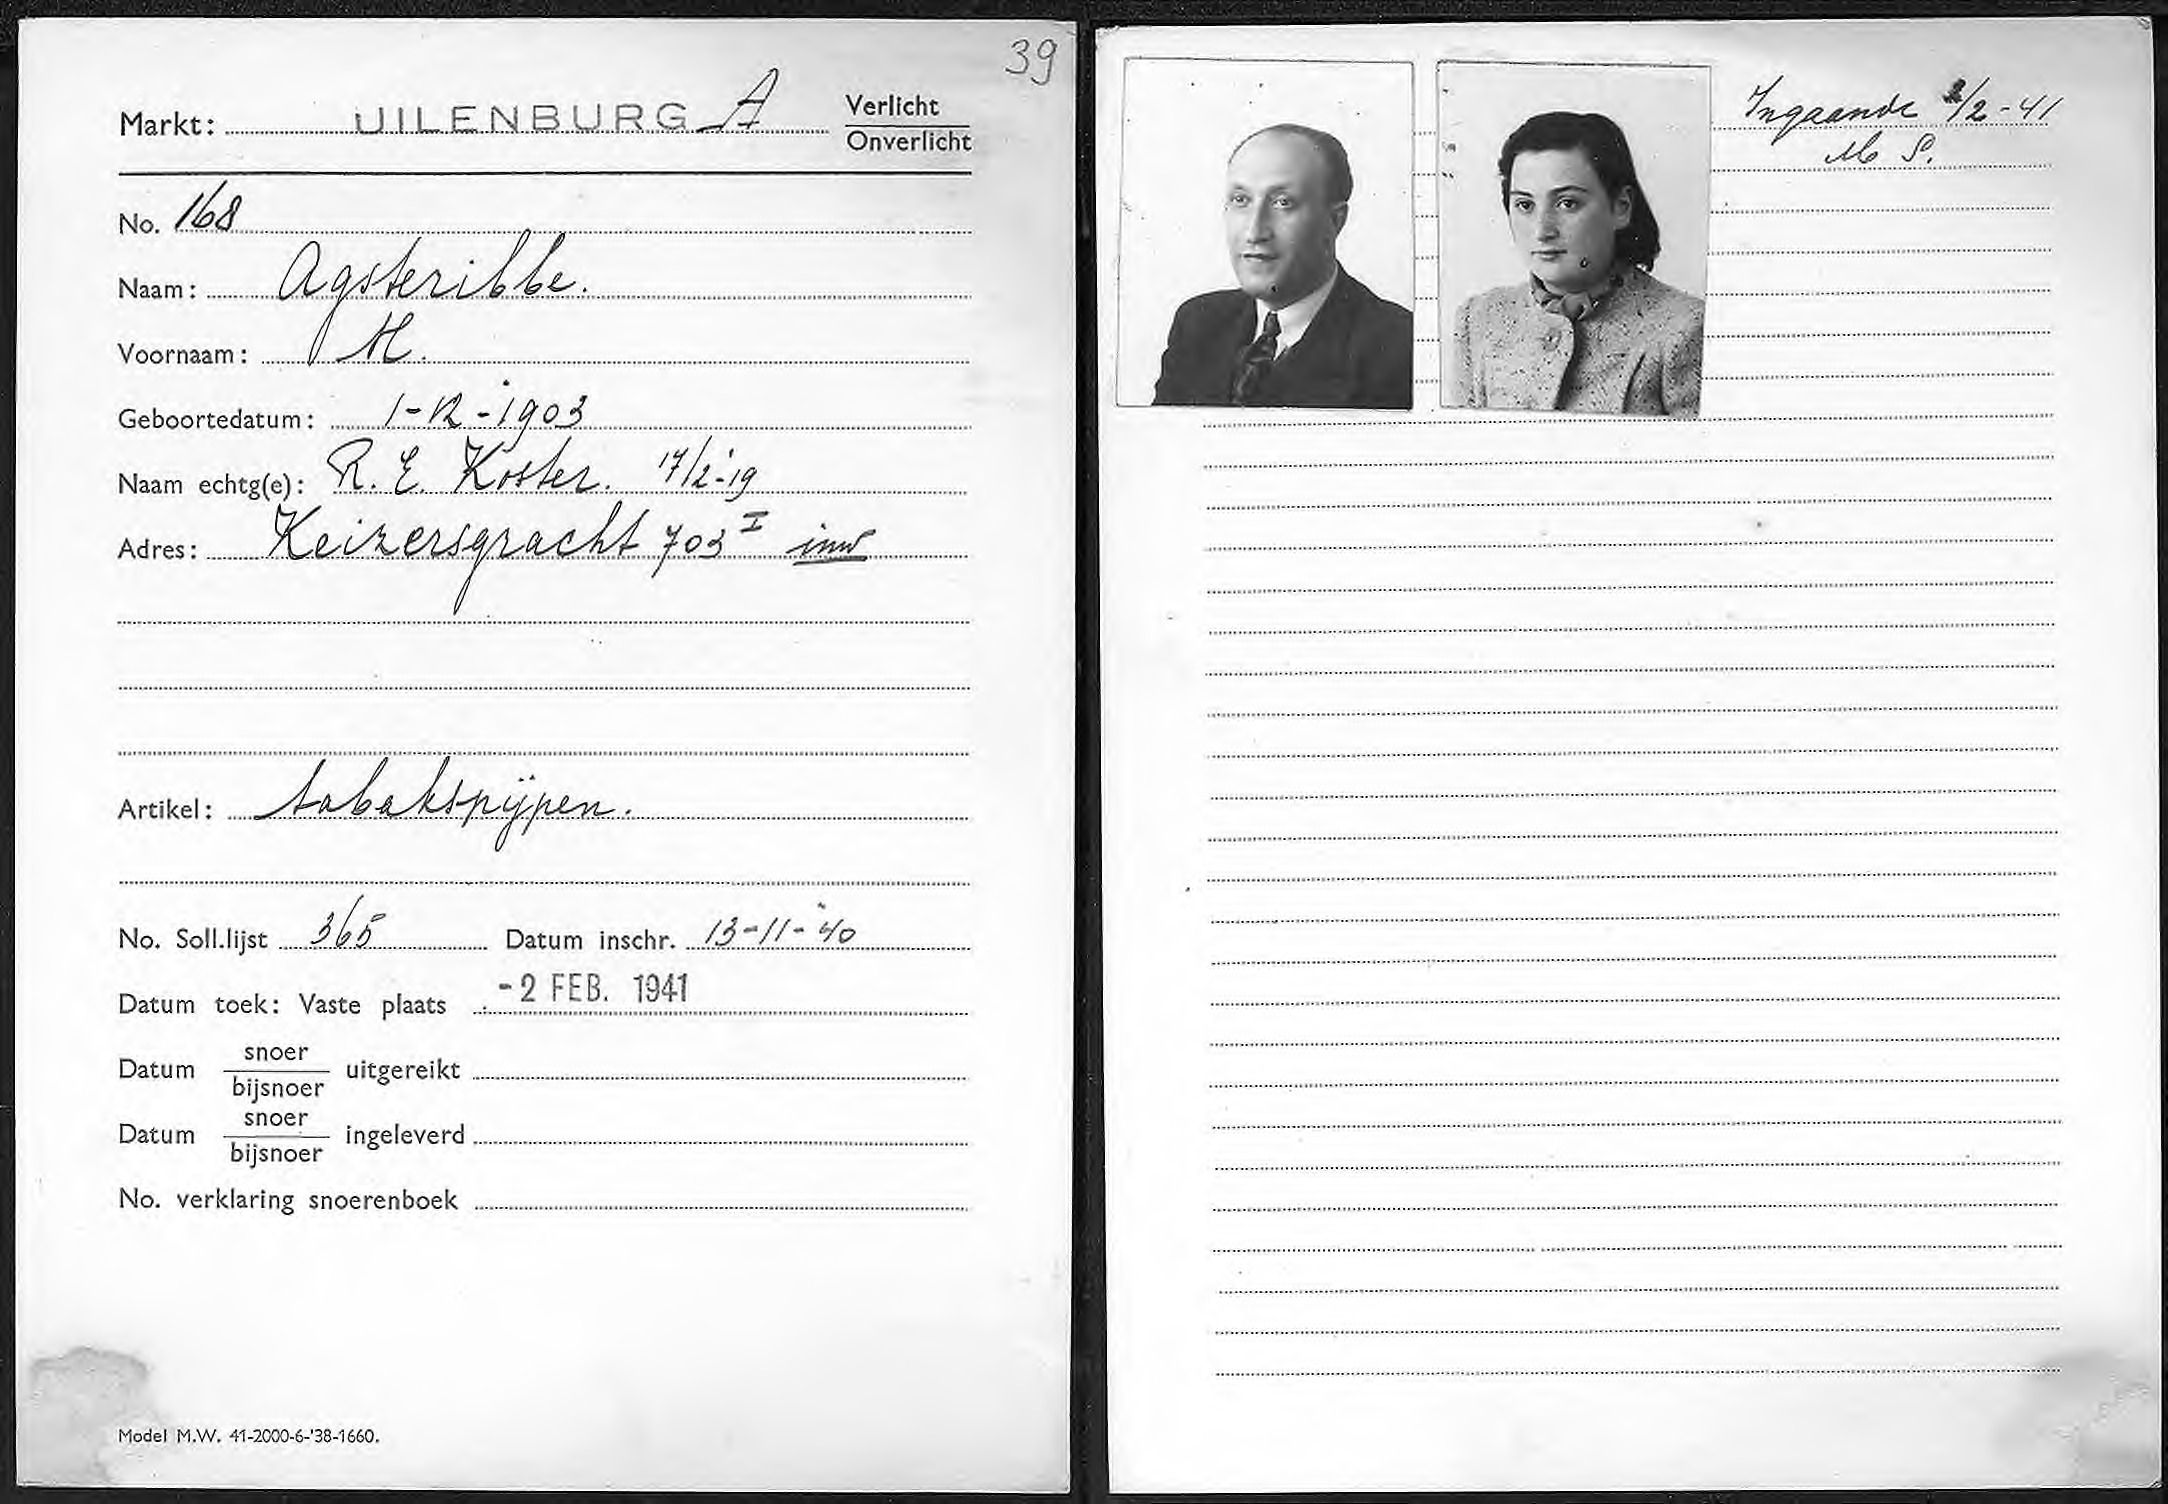 39
Markt: UILENBURG A Verlicht
Onverlicht
No. 168
Naam: Agsteribbe.
Voornaam: M.
Geboortedatum: 1-12-1903
Naam echtg(e): R. E. Koster. 17/2-19
Adres: Keizersgracht 703 I inw
Artikel: tabakspijpen.
No. Soll.lijst 365 Datum inschr. 13-11-'40
Datum toek: Vaste plaats -2 FEB. 1941
Datum snoer
bijsnoer uitgereikt
Datum snoer
bijsnoer ingeleverd
No. verklaring snoerenboek
Model M.W. 41-2000-6-'38-1660.
Ingaande 2/2-41